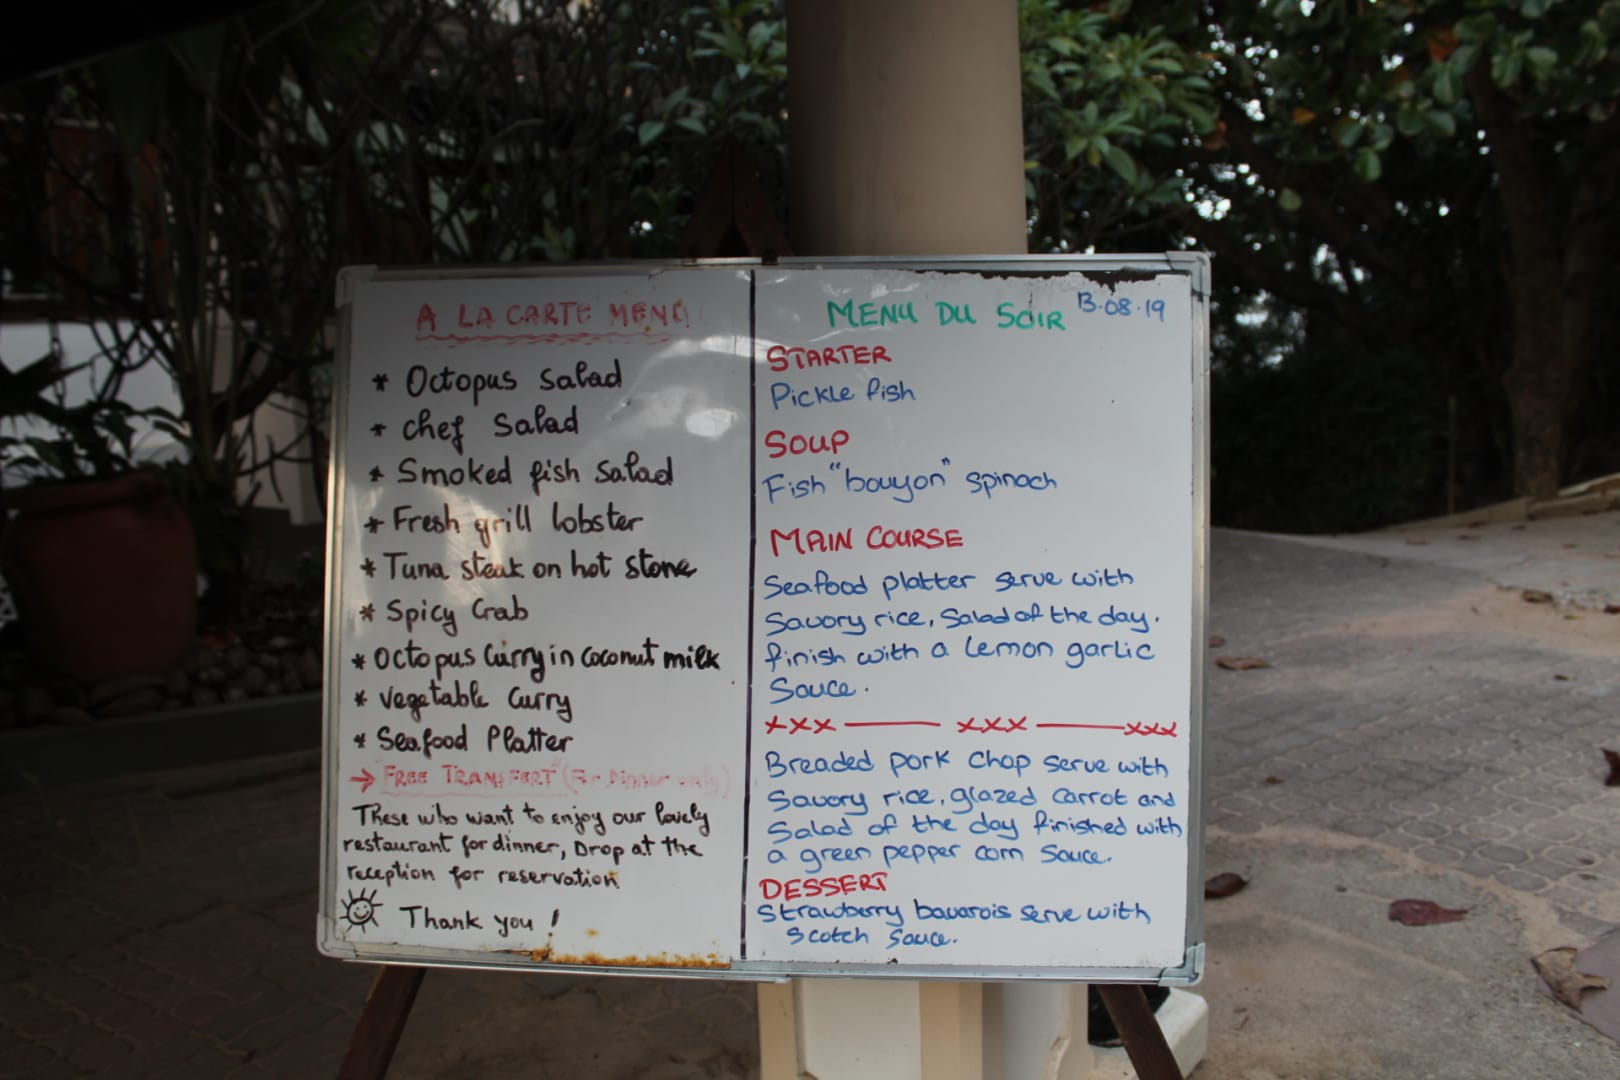 A LA CARTE MENU
* Octopus Salad
* chef Salad
* Smoked fish Salad
* Fresh grill lobster
* Tuna steak on hot stone
* Spicy Crab
* Octopus Curry in Coconut milk
* vegetable Curry
* Seafood Platter
→ "FREE TRANSFERT" (For Dinner only)
These who want to enjoy our lovely
restaurant for dinner, Drop at the
reception for reservation
Thank you !
MENU DU SOIR 13.08.19
STARTER
Pickle fish
SOUP
Fish "bouyon" spinach
MAIN COURSE
Seafood platter serve with
Savory rice, Salad of the day.
finish with a Lemon garlic
Sauce.
xxx — xxx — xxx
Breaded pork chop serve with
Savory rice, glazed carrot and
Salad of the day finished with
a green pepper corn Sauce.
DESSERT
Strawberry bavarois serve with
Scotch Sauce.